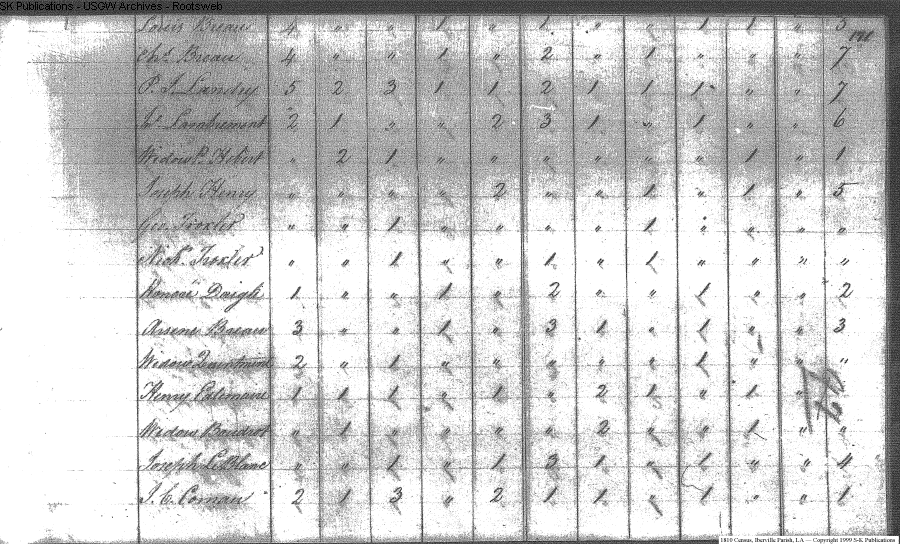 SK Publications - USGW Archives - Rootsweb
Louis Breau 4 " " 1 " 1 " " 1 1 " 3
Breau 4 " " 1 " 2 " 1 " " " 7
P. J. Landry 5 2 3 1 1 2 1 1 1 " " 7
2 1 " " 2 3 1 " 1 " " 6
Widow P. Hebert " 2 1 " " " " " " 1 " 1
Joseph Henry " " " " 2 " " 1 " 1 " 5
Geo. Troxler " " 1 " " " " 1 " " " "
Nichs. Troxler " " 1 " " 1 " 1 " " " "
Honoré Daigle 1 " " 1 " 2 " " 1 " " 2
Arsene Breau 3 " " 1 " 3 1 " 1 " " 3
Widow 2 " 1 " " " " " 1 " " "
Henry 1 1 1 " 1 " 2 1 " 1 "
Widow Boudrot " 1 " " " " 2 " " 1 " "
Joseph LeBlanc " " 1 " 1 3 1 " 1 " " 4
J. C. Comau 2 1 3 " 2 1 1 " 1 " " 1
1810 Census, Iberville Parish, LA — Copyright 1999 S-K Publications